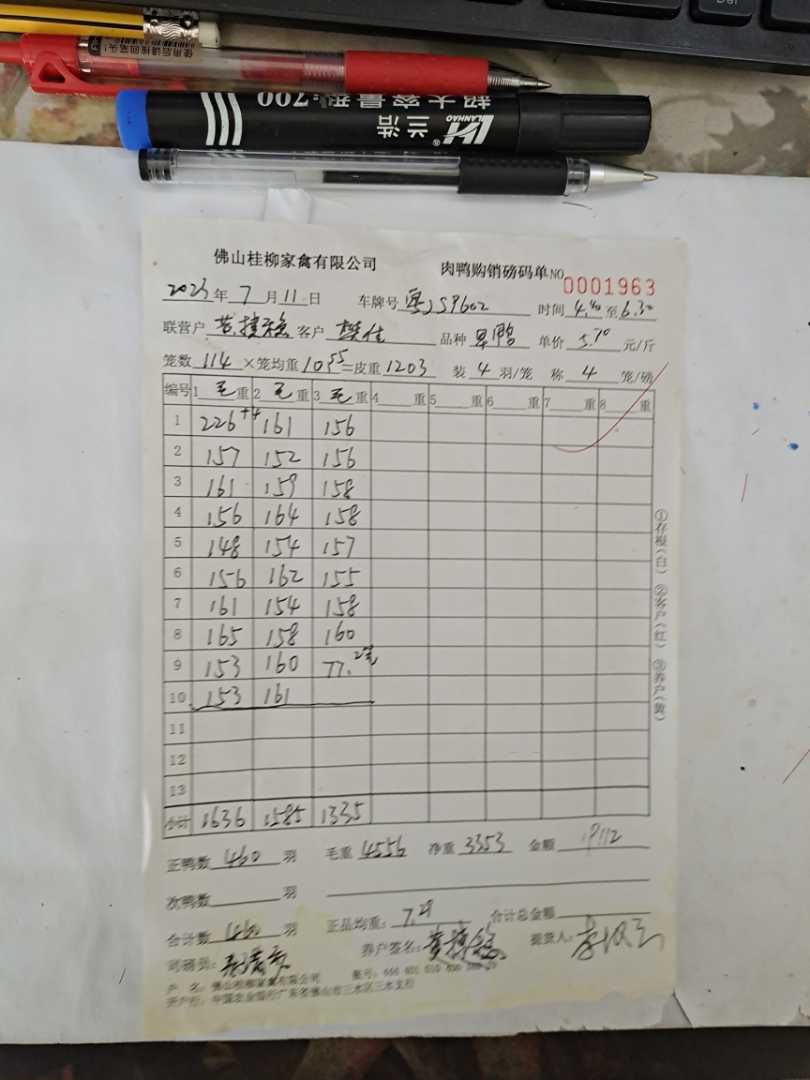 Del
使用后请按回笔头!
超大容量型:700
兰浩
LANHAO
佛山桂柳家禽有限公司 肉鸭购销磅码单 NO 0001963
2023年 7 月 11 日 车牌号 粤JS9602 时间 4.40 至 6.30
联营户 客户 樊佳 品种 旱鸭 单价 5.70 元/斤
笼数 114 ×笼均重 10.55 =皮重 1203 装 4 羽/笼 称 4 笼/磅
编号 1 毛 重 2 毛 重 3 毛 重 4 重 5 重 6 重 7 重 8 重
1 226+4 161 156
2 157 152 156
3 161 159 158
4 156 164 158
5 148 154 157
6 156 162 155
7 161 154 158
8 165 158 160
9 153 160 77.2笼
10 153 161
11
12
13
小计 1636 1585 1335
正鸭数 460 羽 毛重 4556 净重 3353 金额 19112
次鸭数 羽
合计数 460 羽 正品均重: 7.29 合计总金额
司磅员: 养户签名: 提货人:
户 名: 佛山桂柳家禽有限公司 账号:
开户行: 中国农业银行广东省佛山市三水区三水支行
①存根(白) ②客户(红) ③养户(黄)